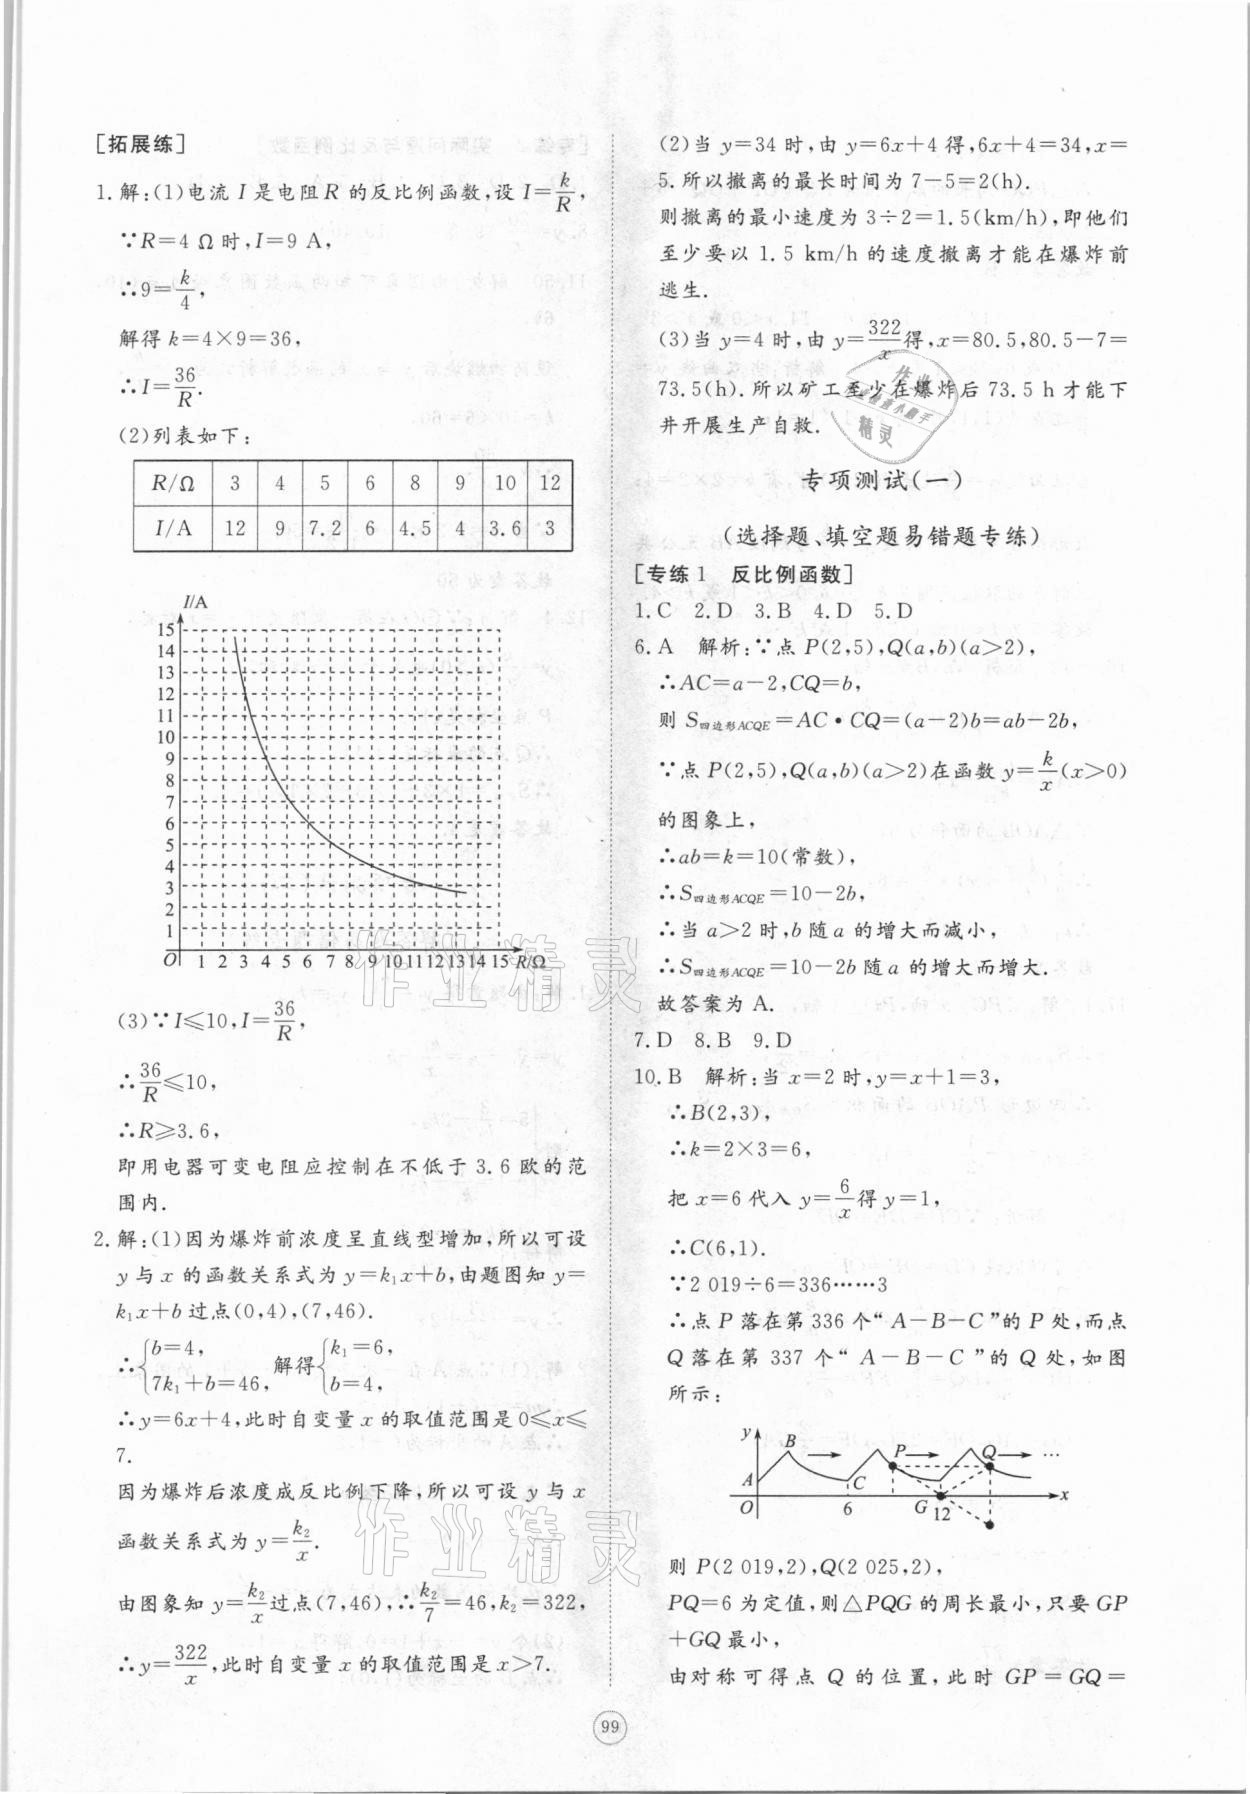 [拓展练]
1.解:(1)电流 I 是电阻 R 的反比例函数,设 I=k/R,
∵R=4 Ω 时,I=9 A,
∴9=k/4,
解得 k=4×9=36,
∴I=36/R.
(2)列表如下:
R/Ω 3 4 5 6 8 9 10 12
I/A 12 9 7.2 6 4.5 4 3.6 3
I/A
15
14
13
12
11
10
9
8
7
6
5
4
3
2
1
O 1 2 3 4 5 6 7 8 9 10 11 12 13 14 15 R/Ω
(3)∵I≤10,I=36/R,
∴36/R≤10,
∴R≥3.6,
即用电器可变电阻应控制在不低于 3.6 欧的范
围内.
2.解:(1)因为爆炸前浓度呈直线型增加,所以可设
y 与 x 的函数关系式为 y=k₁x+b,由题图知 y=
k₁x+b 过点(0,4),(7,46).
∴{b=4, 7k₁+b=46, 解得{k₁=6, b=4,
∴y=6x+4,此时自变量 x 的取值范围是 0≤x≤
7.
因为爆炸后浓度成反比例下降,所以可设 y 与 x
函数关系式为 y=k₂/x.
由图象知 y=k₂/x过点(7,46),∴k₂/7=46,k₂=322,
∴y=322/x,此时自变量 x 的取值范围是 x>7.
(2)当 y=34 时,由 y=6x+4 得,6x+4=34,x=
5.所以撤离的最长时间为 7-5=2(h).
则撤离的最小速度为 3÷2=1.5(km/h),即他们
至少要以 1.5 km/h 的速度撤离才能在爆炸前
逃生.
(3)当 y=4 时,由 y=322/x得,x=80.5,80.5-7=
73.5(h).所以矿工至少在爆炸后 73.5 h 才能下
井开展生产自救.
专项测试(一)
(选择题、填空题易错题专练)
[专练1 反比例函数]
1.C 2.D 3.B 4.D 5.D
6.A 解析:∵点 P(2,5),Q(a,b)(a>2),
∴AC=a-2,CQ=b,
则 S四边形ACQE=AC·CQ=(a-2)b=ab-2b,
∵点 P(2,5),Q(a,b)(a>2)在函数 y=k/x(x>0)
的图象上,
∴ab=k=10(常数),
∴S四边形ACQE=10-2b,
∴当 a>2 时,b 随 a 的增大而减小,
∴S四边形ACQE=10-2b 随 a 的增大而增大.
故答案为 A.
7.D 8.B 9.D
10.B 解析:当 x=2 时,y=x+1=3,
∴B(2,3),
∴k=2×3=6,
把 x=6 代入 y=6/x得 y=1,
∴C(6,1).
∵2 019÷6=336……3
∴点 P 落在第 336 个“ A-B-C ”的 P 处,而点
Q 落在第 337 个“ A-B-C ”的 Q 处,如图
所示:
y B P Q …
A C
O 6 G 12 x
则 P(2 019,2),Q(2 025,2),
PQ=6 为定值,则△PQG 的周长最小,只要 GP
+GQ 最小,
由对称可得点 Q 的位置,此时 GP=GQ=
99
作业精灵
作业精灵
作业
精灵